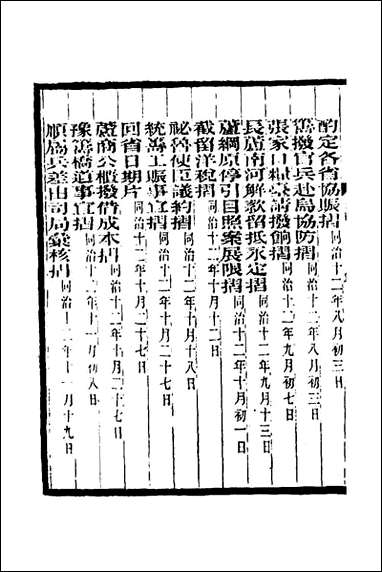 酌定各省協賑摺同治十二年八月初三日
籌撥官兵赴局協防摺同治十二年八月初三日
張家口糧臺請撥餉摺同治十二年九月初七日
長蘆南河解款留抵永定摺同治十二年九月十三日
蘆綱原停引目照案展限摺同治十二年十月初一日
截留洋稅摺同治十二年十月十二日
祕魯使臣議約摺同治十二年十月二十七日
統籌工賑事宜摺同治十二年十月二十七日
回省日期片同治十二年十月二十七日
蘆商公櫃撥借成本摺同治十二年十月二十七日
豫籌橋道事宜摺同治十二年十一月初八日
順屬兵差由司局彙核摺同治十二年十一月十九日